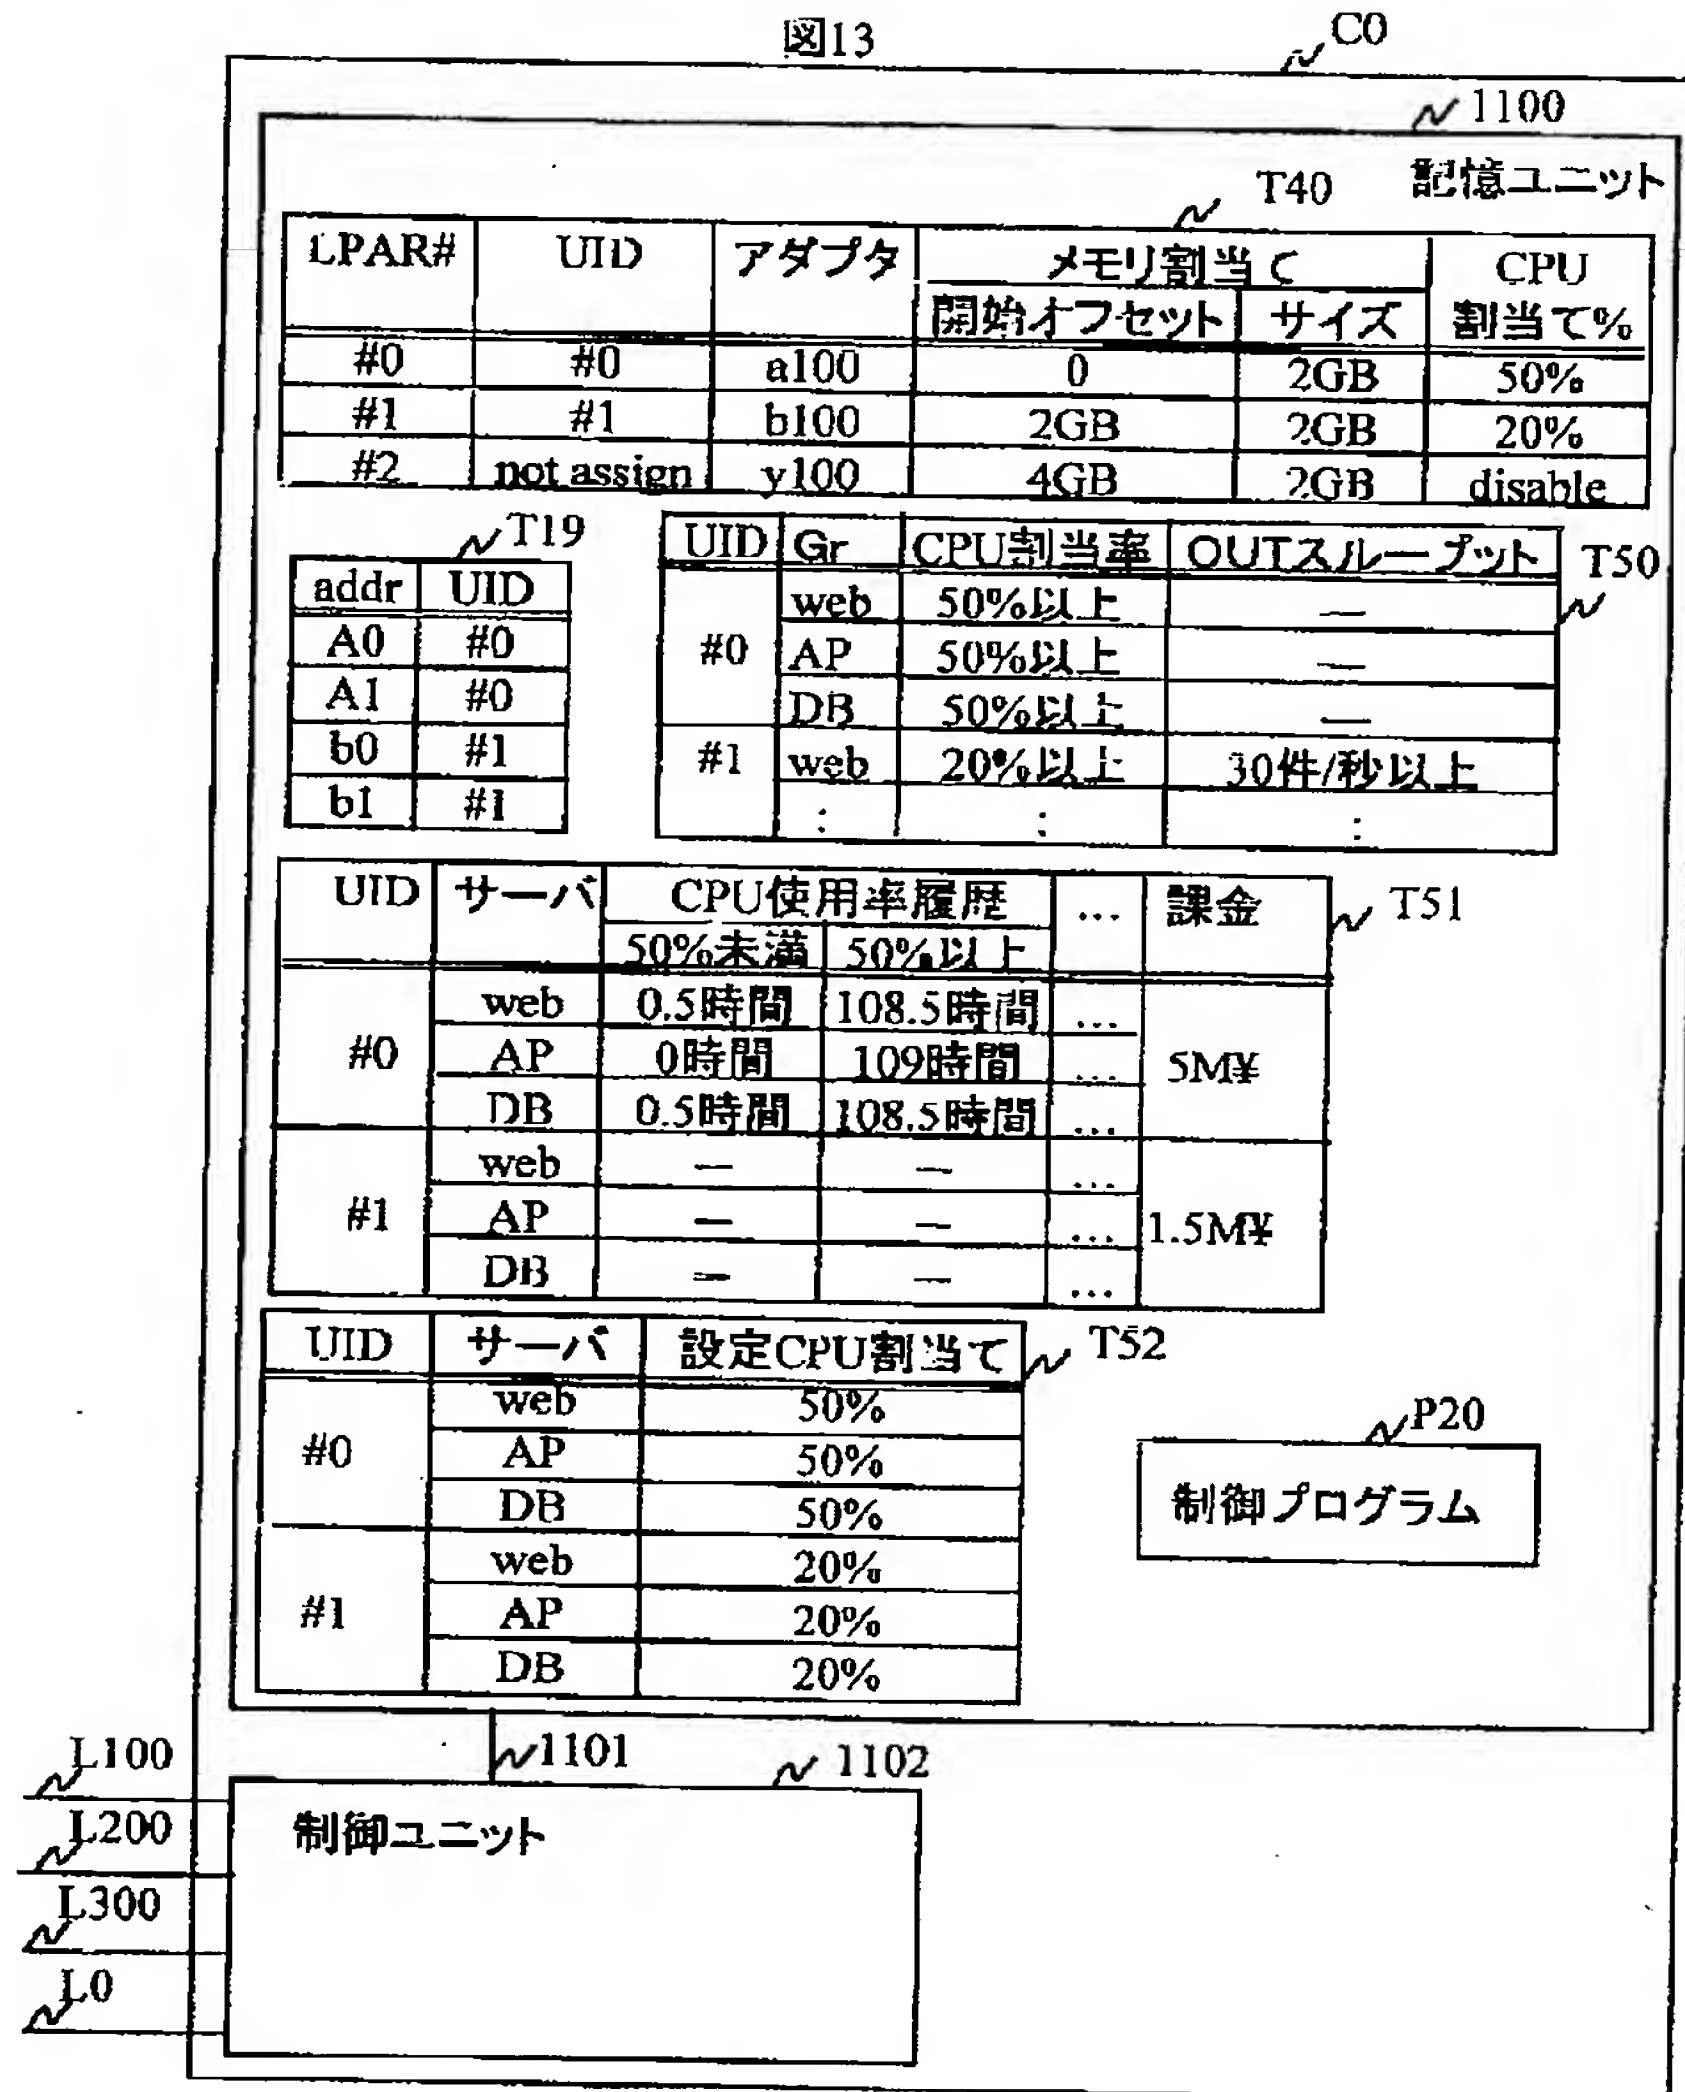 図13
C0
1100
記憶ユニット
T40
LPAR# UID アダプタ メモリ割当て CPU
開始オフセット サイズ 割当て%
#0 #0 a100 0 2GB 50%
#1 #1 b100 2GB 2GB 20%
#2 not assign y100 4GB 2GB disable
T19
addr UID
A0 #0
A1 #0
b0 #1
b1 #1
T50
UID Gr CPU割当率 OUTスループット
#0 web 50%以上 —
AP 50%以上 —
DB 50%以上 —
#1 web 20%以上 30件/秒以上
: : :
T51
UID サーバ CPU使用率履歴 … 課金
50%未満 50%以上
#0 web 0.5時間 108.5時間 … 5M¥
AP 0時間 109時間 …
DB 0.5時間 108.5時間 …
#1 web — — … 1.5M¥
AP — — …
DB — — …
T52
UID サーバ 設定CPU割当て
#0 web 50%
AP 50%
DB 50%
#1 web 20%
AP 20%
DB 20%
P20
制御プログラム
1101
1102
制御ユニット
L100
L200
L300
L0